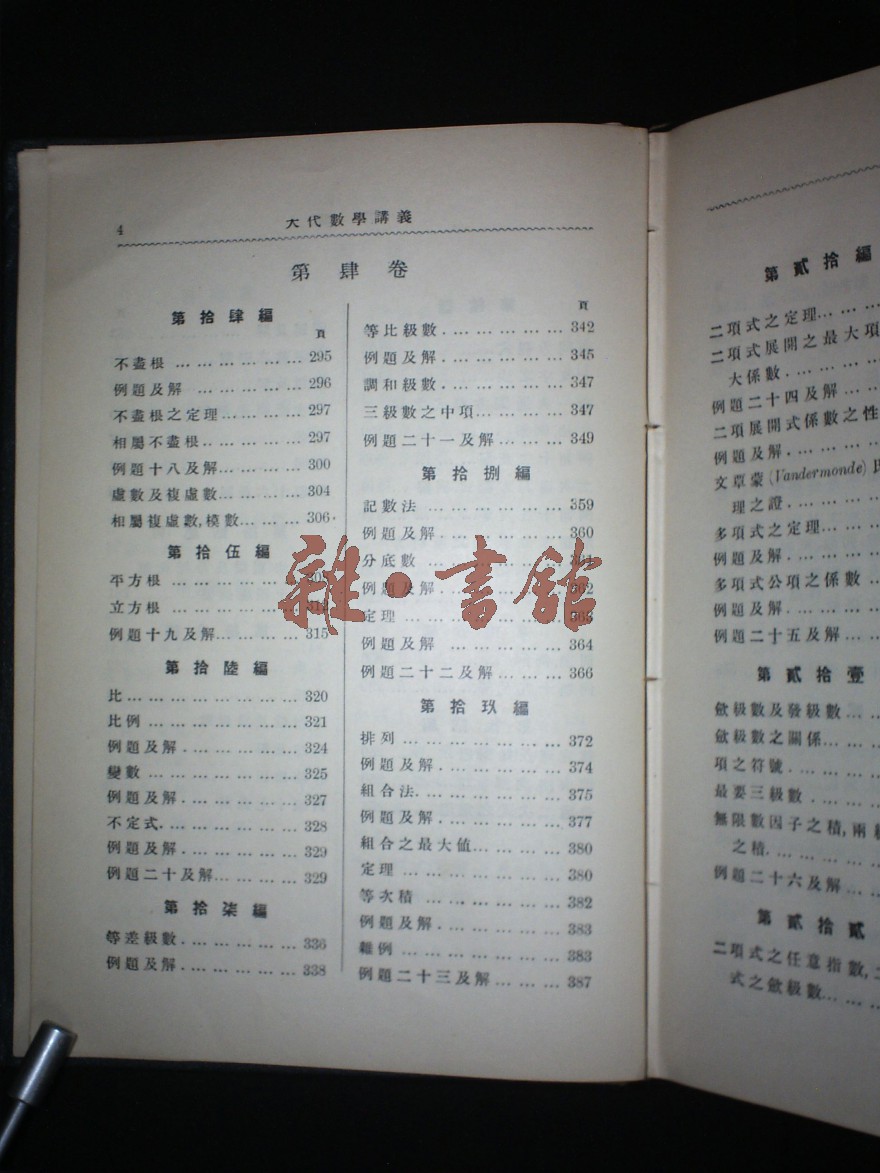 4
大代數學講義
第肆卷
第拾肆編
頁
不盡根 … … … … … 295
例題及解 … … … … 296
不盡根之定理… … … 297
相屬不盡根… … … … 297
例題十八及解… … … 300
虛數及複虛數… … … 304
相屬複虛數,模數… … 306
第拾伍編
平方根 … … … … …
立方根 … … … … …
例題十九及解… … … 315
第拾陸編
比… … … … … … … 320
比例… … … … … … 321
例題及解… … … … … 324
變數 … … … … … … 325
例題及解… … … … … 327
不定式… … … … … … 328
例題及解… … … … … 329
例題二十及解… … … 329
第拾柒編
等差級數… … … … … 336
例題及解… … … … … 338
頁
等比級數… … … … … 342
例題及解… … … … … 345
調和級數… … … … … 347
三級數之中項… … … 347
例題二十一及解… … … 349
第拾捌編
記數法 … … … … … 359
例題及解… … … … … 360
分底數 … … … … …
例題及解… … … … … 362
定理 … … … … … … 363
例題及解 … … … … 364
例題二十二及解… … … 366
第拾玖編
排列… … … … … … 372
例題及解… … … … … 374
組合法… … … … … … 375
例題及解… … … … … 377
組合之最大値… … … 380
定理 … … … … … … 380
等次積 … … … … … 382
例題及解… … … … … 383
雜例 … … … … … … 383
例題二十三及解… … … 387
第貳拾編
二項式之定理… … …
二項式展開之最大項
大係數… … … …
例題二十四及解… …
二項展開式係數之性
例題及解… … … …
文覃蒙 (Vandermonde)
理之證… … … …
多項式之定理… … …
例題及解… … … …
多項式公項之係數 …
例題及解… … … …
例題二十五及解… …
第貳拾壹
斂級數及發級數… …
斂級數之關係… … …
項之符號… … … …
最要三級數… … …
無限數因子之積,兩級
之積… … … …
例題二十六及解… …
第貳拾貳
二項式之任意指數,
式之斂級數… … …
雜·書館